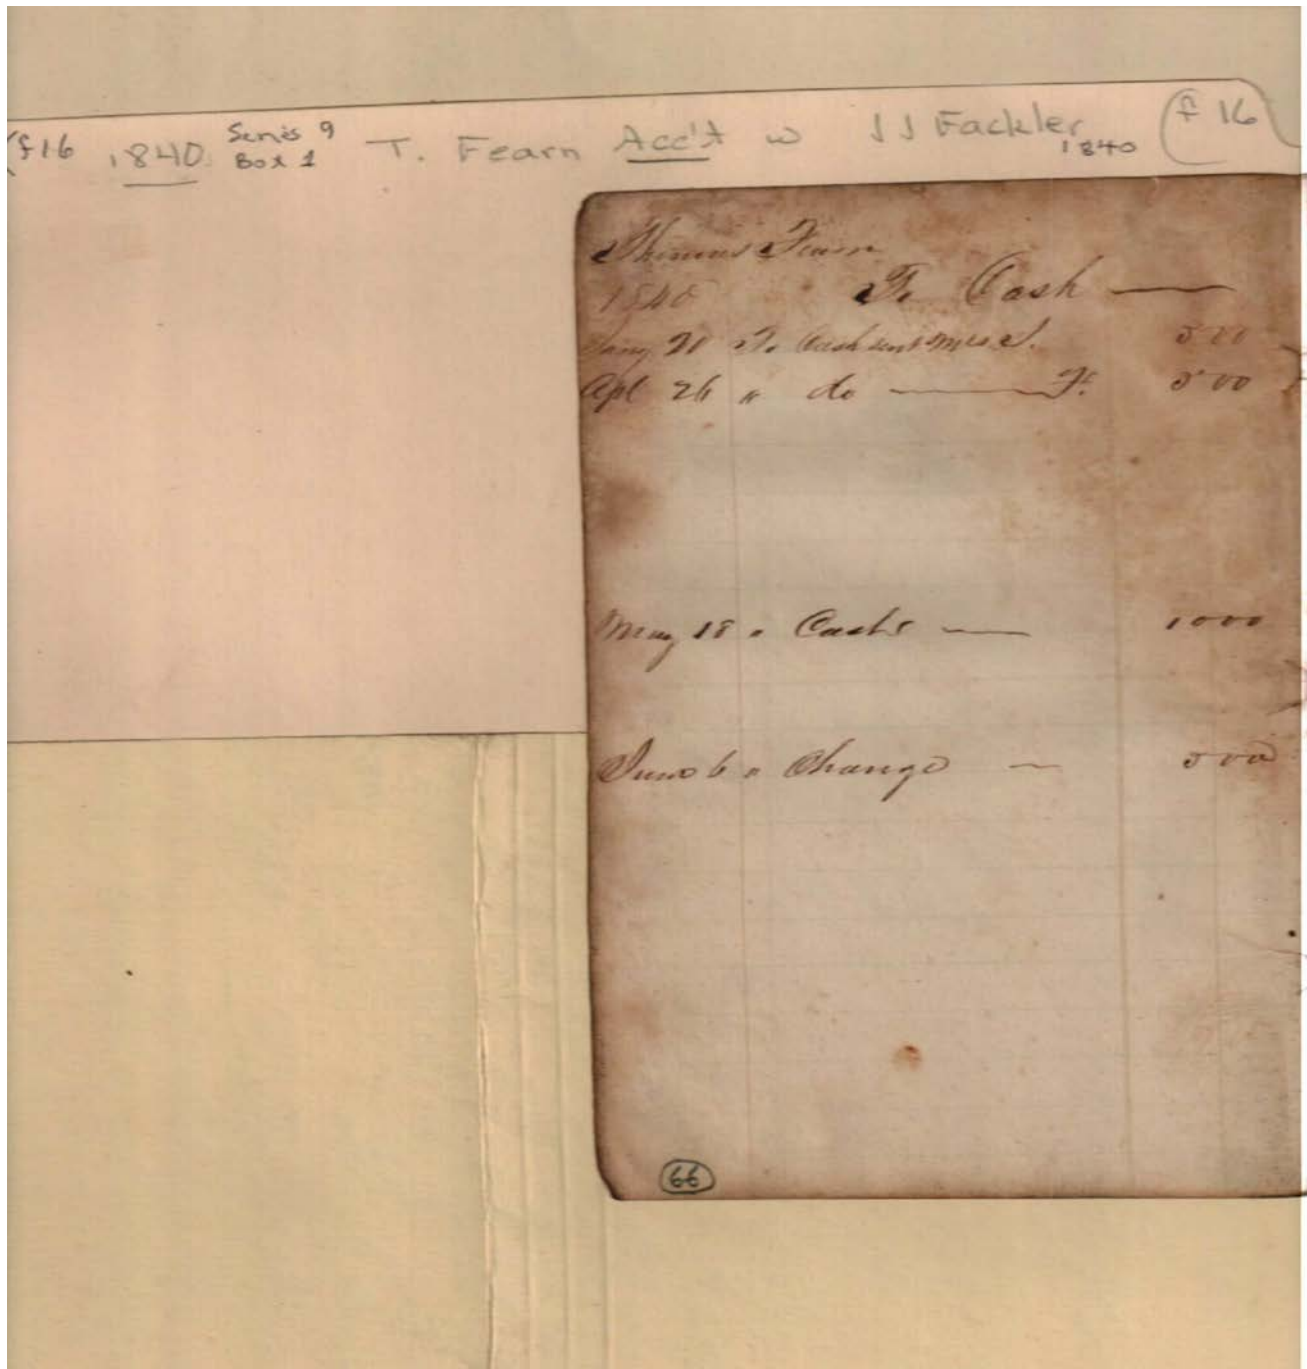 f16 1840 Series 9 T. Fearn Acc't w JJ Fackler 1840 f 16
Box 1
Thomas Fearn
1840 To Cash
Jany 20 To Cash sent Mrs 500
Apl 26 " do F. 500
May 18 " Cash 1000
June 6 " Change 500
66